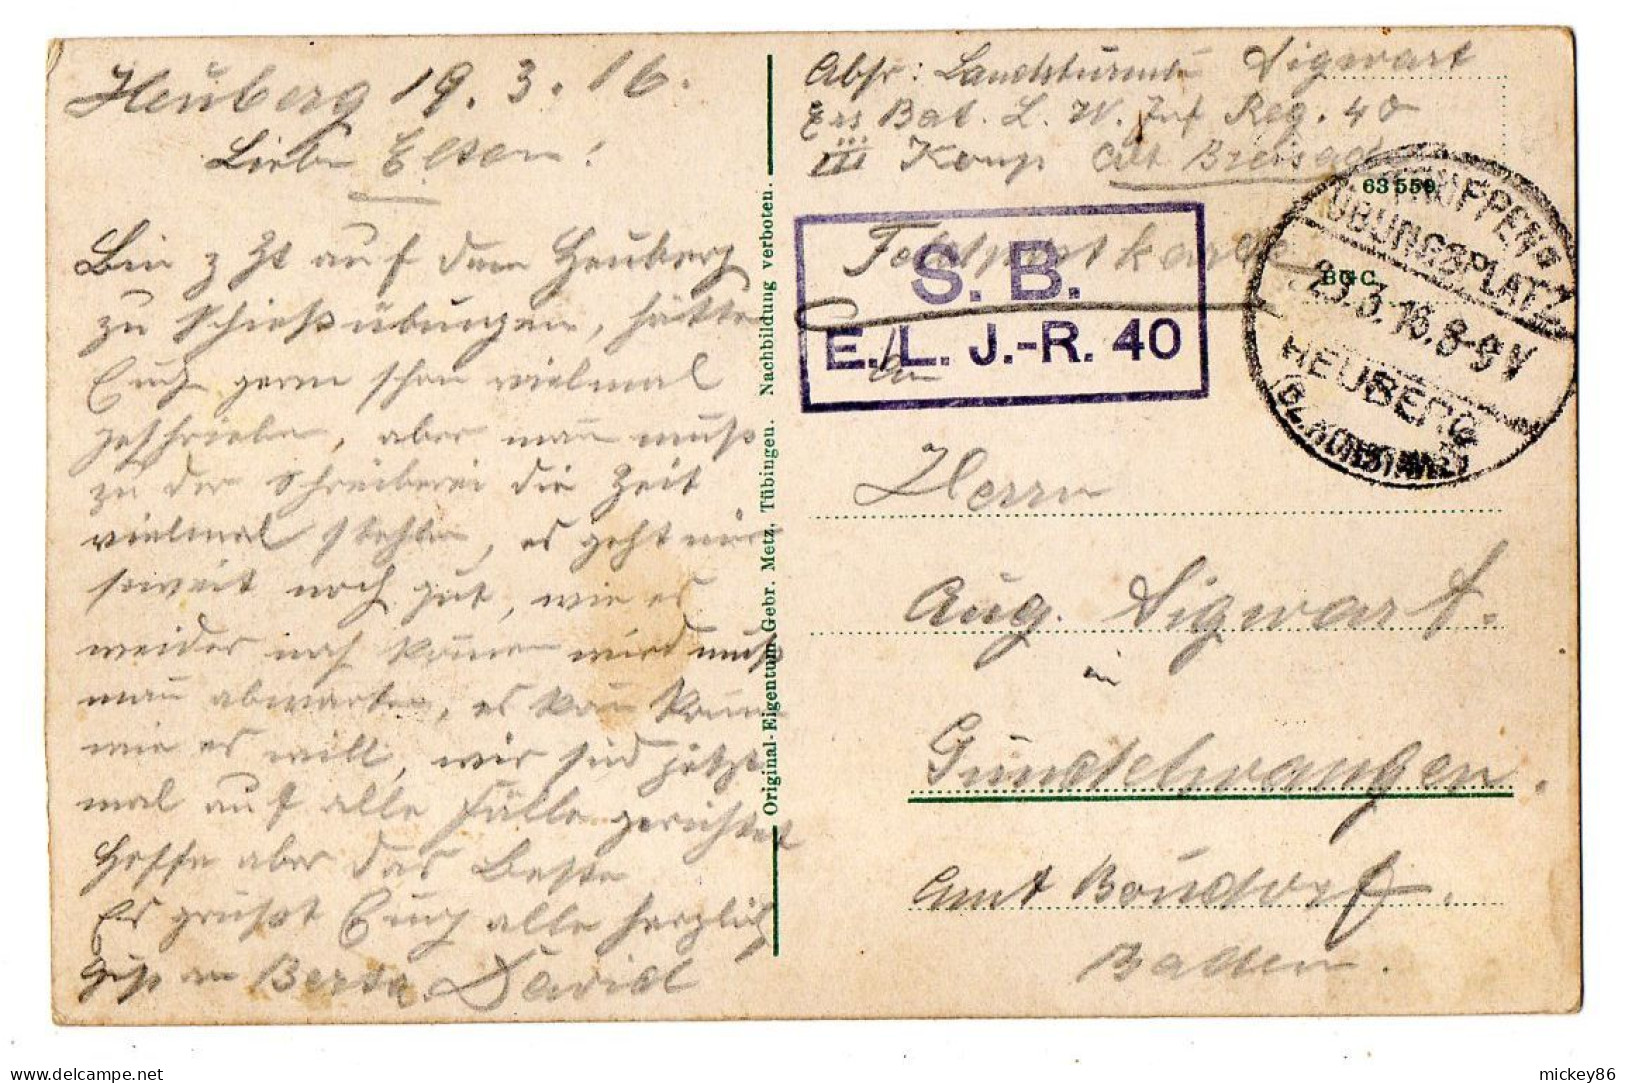 Heuberg 19. 3. 16.
Liebe Eltern!
Bin z Zt auf dem Heuberg
zu Schießübungen, hätte
Euch gern schon vielmal
geschrieben, aber man muß
zu der Schreiberei die Zeit
vielmal stehlen, es geht mir
soweit noch gut, wie es
weider noch kommen wird muß
man abwarten, es kann kommen
wie es will, wir sind jetzt
mal auf alle Fälle gerichtet
Hoffe aber das Beste
Es grüßt Euch alle herzlich
Gruß an Berta. David
Original-Eigentum Gebr. Metz, Tübingen. Nachbildung verboten.
Abs: Landsturmm Sigwart
Ers Bat. L. W. Inf Reg. 40
III Komp Alt Breisach
63 559
Feldpostkarte
BGC
S. B.
E./L. J.-R. 40
An
TRUPPEN-
ÜBUNGSPLATZ
23.3.16.8-9V
HEUBERG
(BZ. KONSTANZ)
Herrn
Aug. Sigwart.
in
Gündelwangen.
Amt Bondorf.
Baden.
mickey86